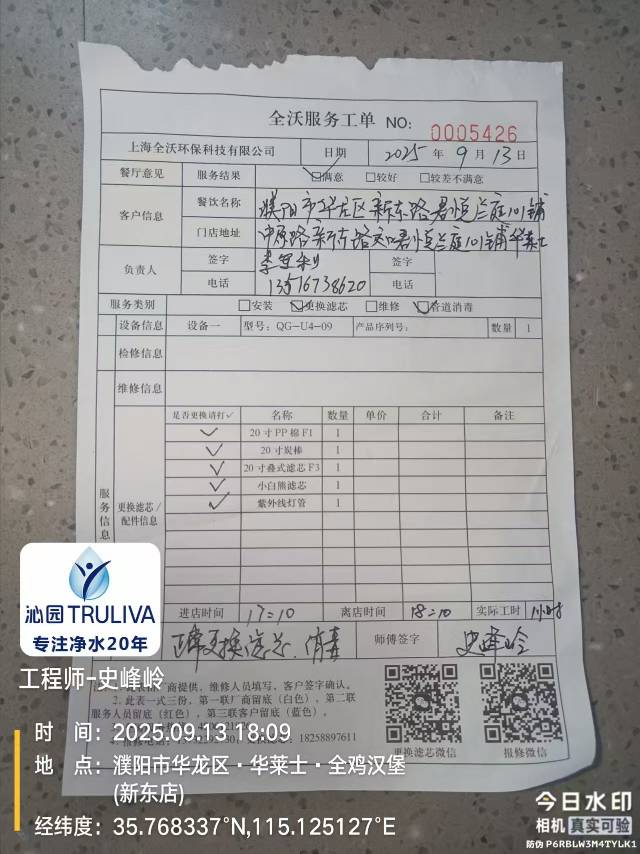 全沃服务工单 NO: 0005426
上海全沃环保科技有限公司 日期 2025 年 9 月 13 日
餐厅意见 服务结果 满意 较好 较差不满意
客户信息 餐饮名称 濮阳市华龙区新东路君悦兰庭101铺
门店地址 中原路新东路交叉君悦兰庭101铺华莱士
负责人 签字 签字
电话 13516738620 电话
服务类别 安装 更换滤芯 维修 管道消毒
设备信息 设备一 型号: QG-U4-09 产品序列号: 数量 1
检修信息
维修信息
服务信息
更换滤芯/配件信息
是否更换请打✓ 名称 数量 单价 合计 备注
✓ 20寸PP棉F1 1
✓ 20寸炭棒 1
✓ 20寸叠式滤芯F3 1
✓ 小白熊滤芯 1
✓ 紫外线灯管 1
进店时间 17:10 离店时间 18:10 实际工时 1小时
正常更换滤芯、消毒 师傅签字 史峰岭
商提供，维修人员填写，客户签字确认。
2.此表一式三份，第一联厂商留底（白色），第二联
服务人员留底（红色），第三联客户留底（蓝色）。
18258897611
更换滤芯微信 报修微信
沁园TRULIVA
专注净水20年
工程师-史峰岭
时 间: 2025.09.13 18:09
地 点: 濮阳市华龙区·华莱士·全鸡汉堡
(新东店)
经纬度: 35.768337°N,115.125127°E
今日水印
相机 真实可验
防伪 P6RBLW3M4TYLK1